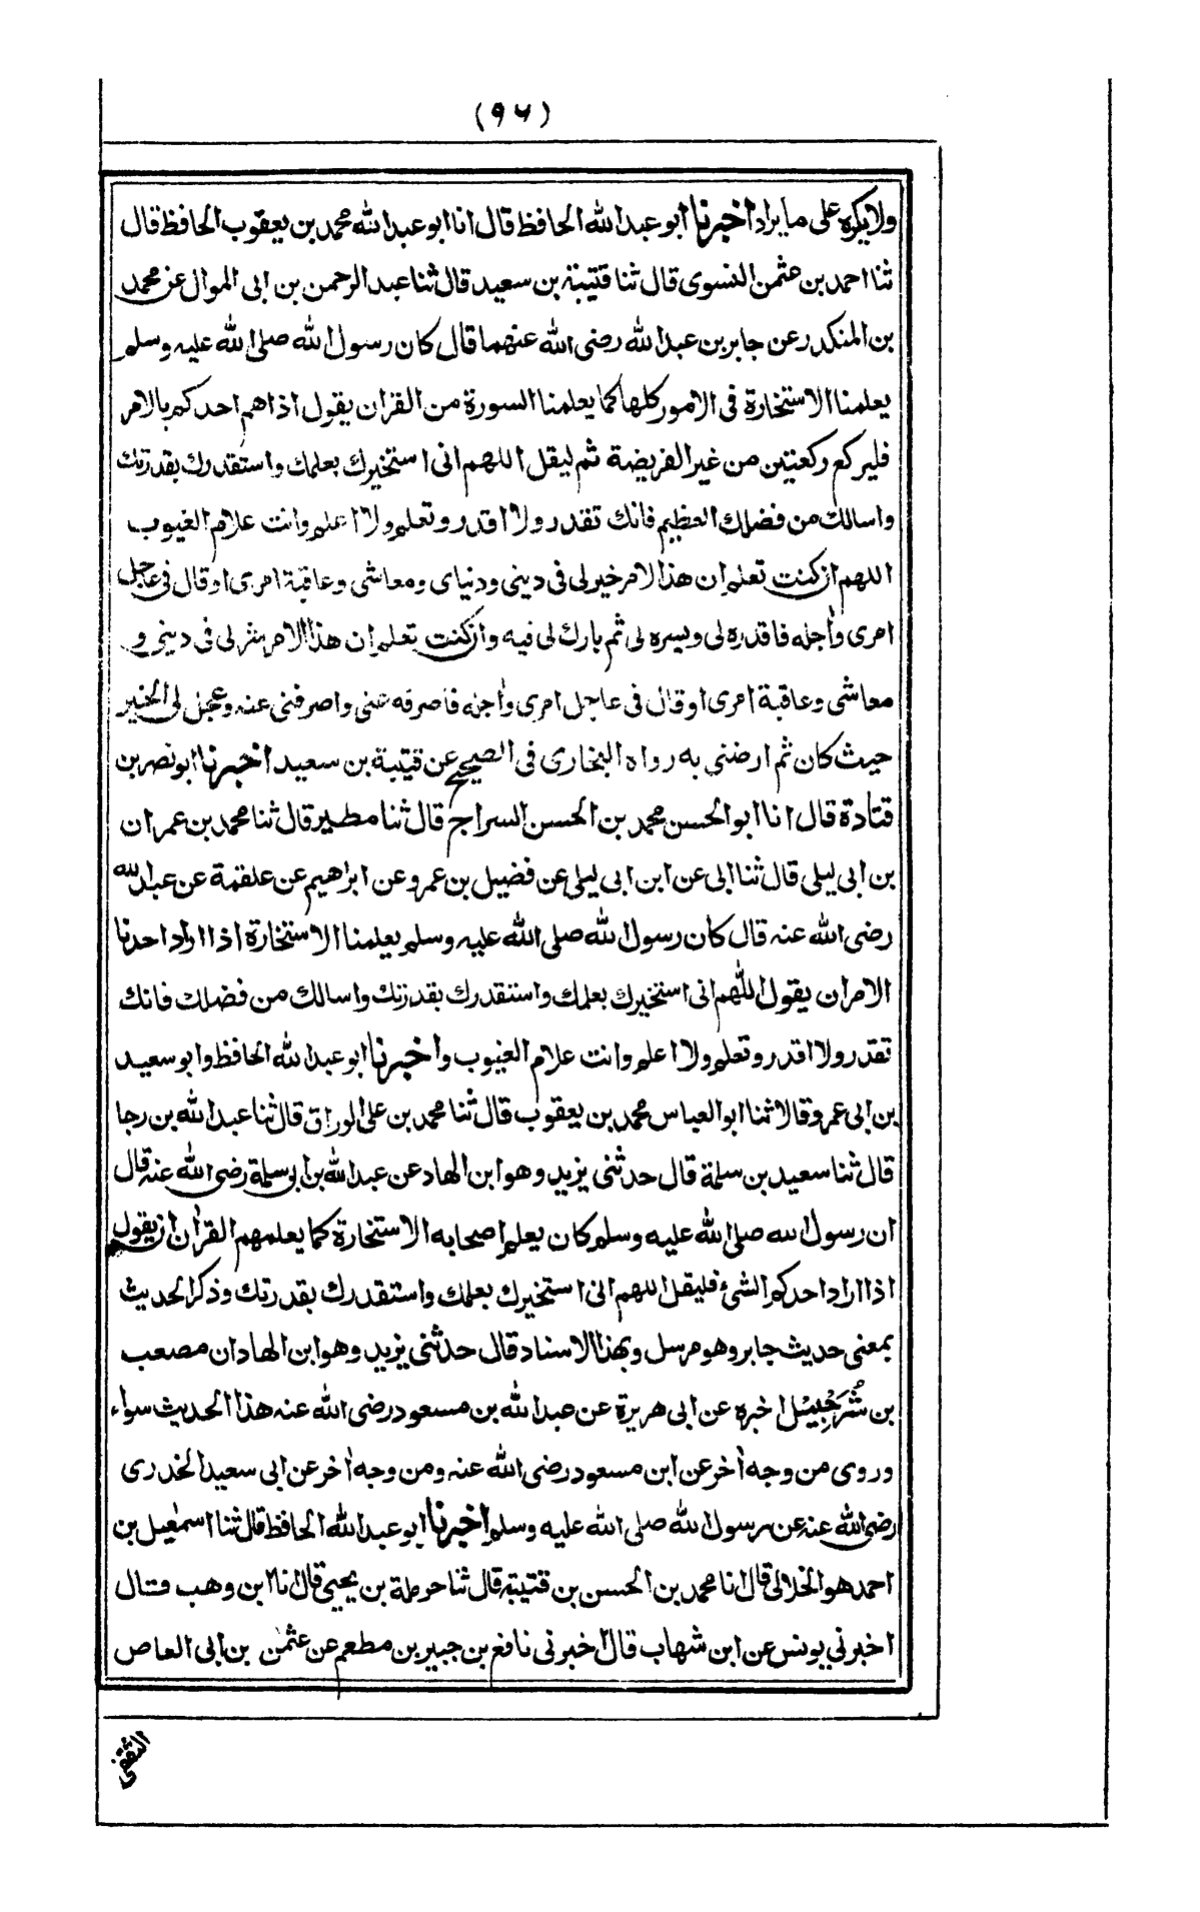 (٩٦)
ولا يكره على ما يراد اخبرنا ابو عبد الله الحافظ قال انا ابو عبد الله محمد بن يعقوب الحافظ قال
ثنا احمد بن عثمن النسوى قال ثنا قتيبة بن سعيد قال ثنا عبد الرحمن بن ابى الموال عن محمد
بن المنكدر عن جابر بن عبد الله رضى الله عنهما قال كان رسول الله صلى الله عليه وسلم
يعلمنا الاستخارة فى الامور كلها كما يعلمنا السورة من القران يقول اذا هم احدكم بالامر
فليركع ركعتين من غير الفريضة ثم ليقل اللهم انى استخيرك بعلمك واستقدرك بقدرتك
واسالك من فضلك العظيم فانك تقدر ولا اقدر وتعلم ولا اعلم وانت علام الغيوب
اللهم ان كنت تعلم ان هذا الامر خير لى فى دينى ودنياى ومعاشى وعاقبة امرى او قال فى عاجل
امرى واٰجله فاقدره لى ويسره لى ثم بارك لى فيه وان كنت تعلم ان هذا الامر شر لى فى دينى و
معاشى وعاقبة امرى او قال فى عاجل امرى واٰجله فاصرفه عنى واصرفنى عنه وعجل لى الخير
حيث كان ثم ارضنى به رواه البخارى فى الصحيح عن قتيبة بن سعيد اخبرنا ابو نصر بن
قتادة قال انا ابو الحسن محمد بن الحسن السراج قال ثنا مطير قال ثنا محمد بن عمران
بن ابى ليلى قال ثنا ابى عن ابن ابى ليلى عن فضيل بن عمرو عن ابراهيم عن علقمة عن عبد الله
رضى الله عنه قال كان رسول الله صلى الله عليه وسلم يعلمنا الاستخارة اذا اراد احدنا
الامر ان يقول اللّٰهم انى استخيرك بعلمك واستقدرك بقدرتك واسالك من فضلك فانك
تقدر ولا اقدر وتعلم ولا اعلم وانت علام الغيوب واخبرنا ابو عبد الله الحافظ وابو سعيد
بن ابى عمرو قالا ثنا ابو العباس محمد بن يعقوب قال ثنا محمد بن على الوراق قال ثنا عبد الله بن رجا
قال ثنا سعيد بن سلمة قال حدثنى يزيد وهو ابن الهاد عن عبد الله بن ابى سلمة رضى الله عنه قال
ان رسول الله صلى الله عليه وسلم كان يعلم اصحابه الاستخارة كما يعلمهم القراٰن ان يقول
اذا اراد احدكم الشئ فليقل اللهم انى استخيرك بعلمك واستقدرك بقدرتك وذكر الحديث
بمعنى حديث جابر وهو مرسل وبهذا الاسناد قال حدثنى يزيد وهو ابن الهاد ان مصعب
بن شُرَحْبِيْل اخبره عن ابى هريرة عن عبد الله بن مسعود رضى الله عنه هذا الحديث سواء
وروى من وجه اٰخر عن ابن مسعود رضى الله عنه ومن وجه اٰخر عن ابى سعيد الخدرى
رضى الله عنه عن رسول الله صلى الله عليه وسلم اخبرنا ابو عبد الله الحافظ قال ثنا اسمٰعيل بن
احمد هو الخلالى قال انا محمد بن الحسن بن قتيبة قال ثنا حرملة بن يحيى قال انا ابن وهب قال
اخبرنى يونس عن ابن شهاب قال اخبرنى نافع بن جبير بن مطعم عن عثمٰن بن ابى العاص
الثقفى